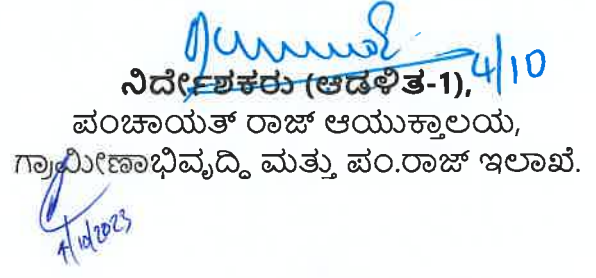 4/10
ನಿರ್ದೇಶಕರು (ಆಡಳಿತ-1),
ಪಂಚಾಯತ್ ರಾಜ್ ಆಯುಕ್ತಾಲಯ,
ಗ್ರಾಮೀಣಾಭಿವೃದ್ದಿ ಮತ್ತು ಪಂ.ರಾಜ್ ಇಲಾಖೆ.
4/10/2023